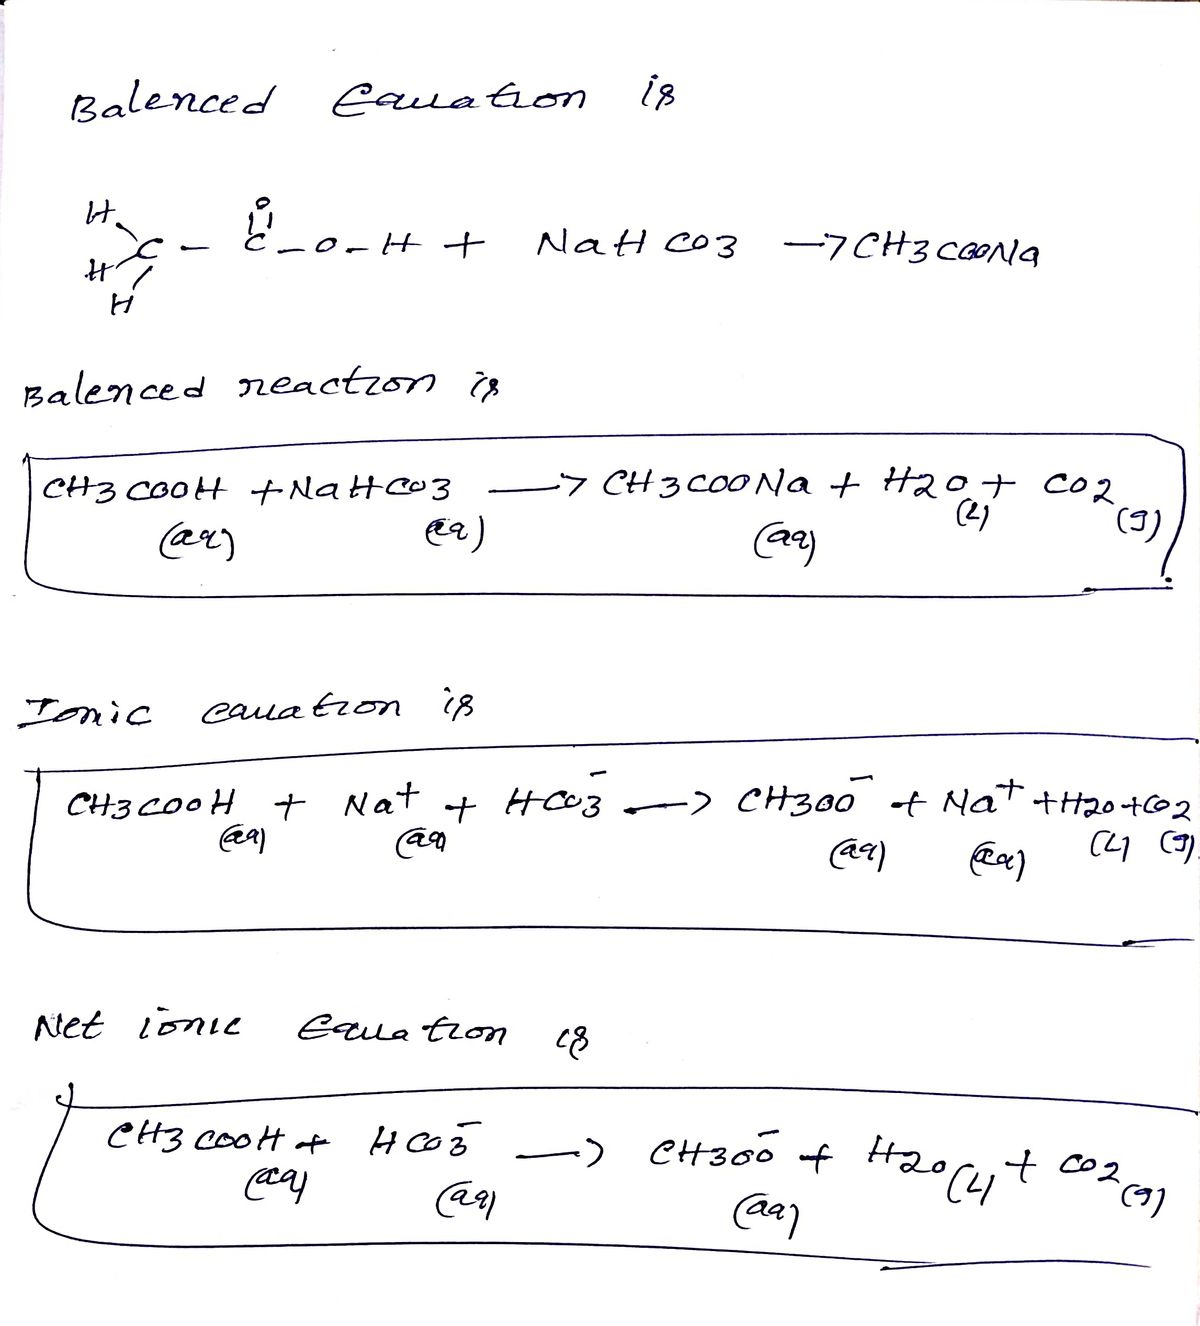 Balenced Equation is
H O
H C - C - O - H + NaHCO3 → CH3COONa
H
Balenced reaction is
CH3COOH + NaHCO3 → CH3COONa + H2O + CO2
(aq) (aq) (aq) (l) (g)
Ionic equation is
CH3COOH + Na+ + HCO3- → CH3OO- + Na+ + H2O + CO2
(aq) (aq) (aq) (aq) (l) (g)
Net ionic Equation is
CH3COOH + HCO3- → CH3OO- + H2O(l) + CO2(g)
(aq) (aq) (aq)